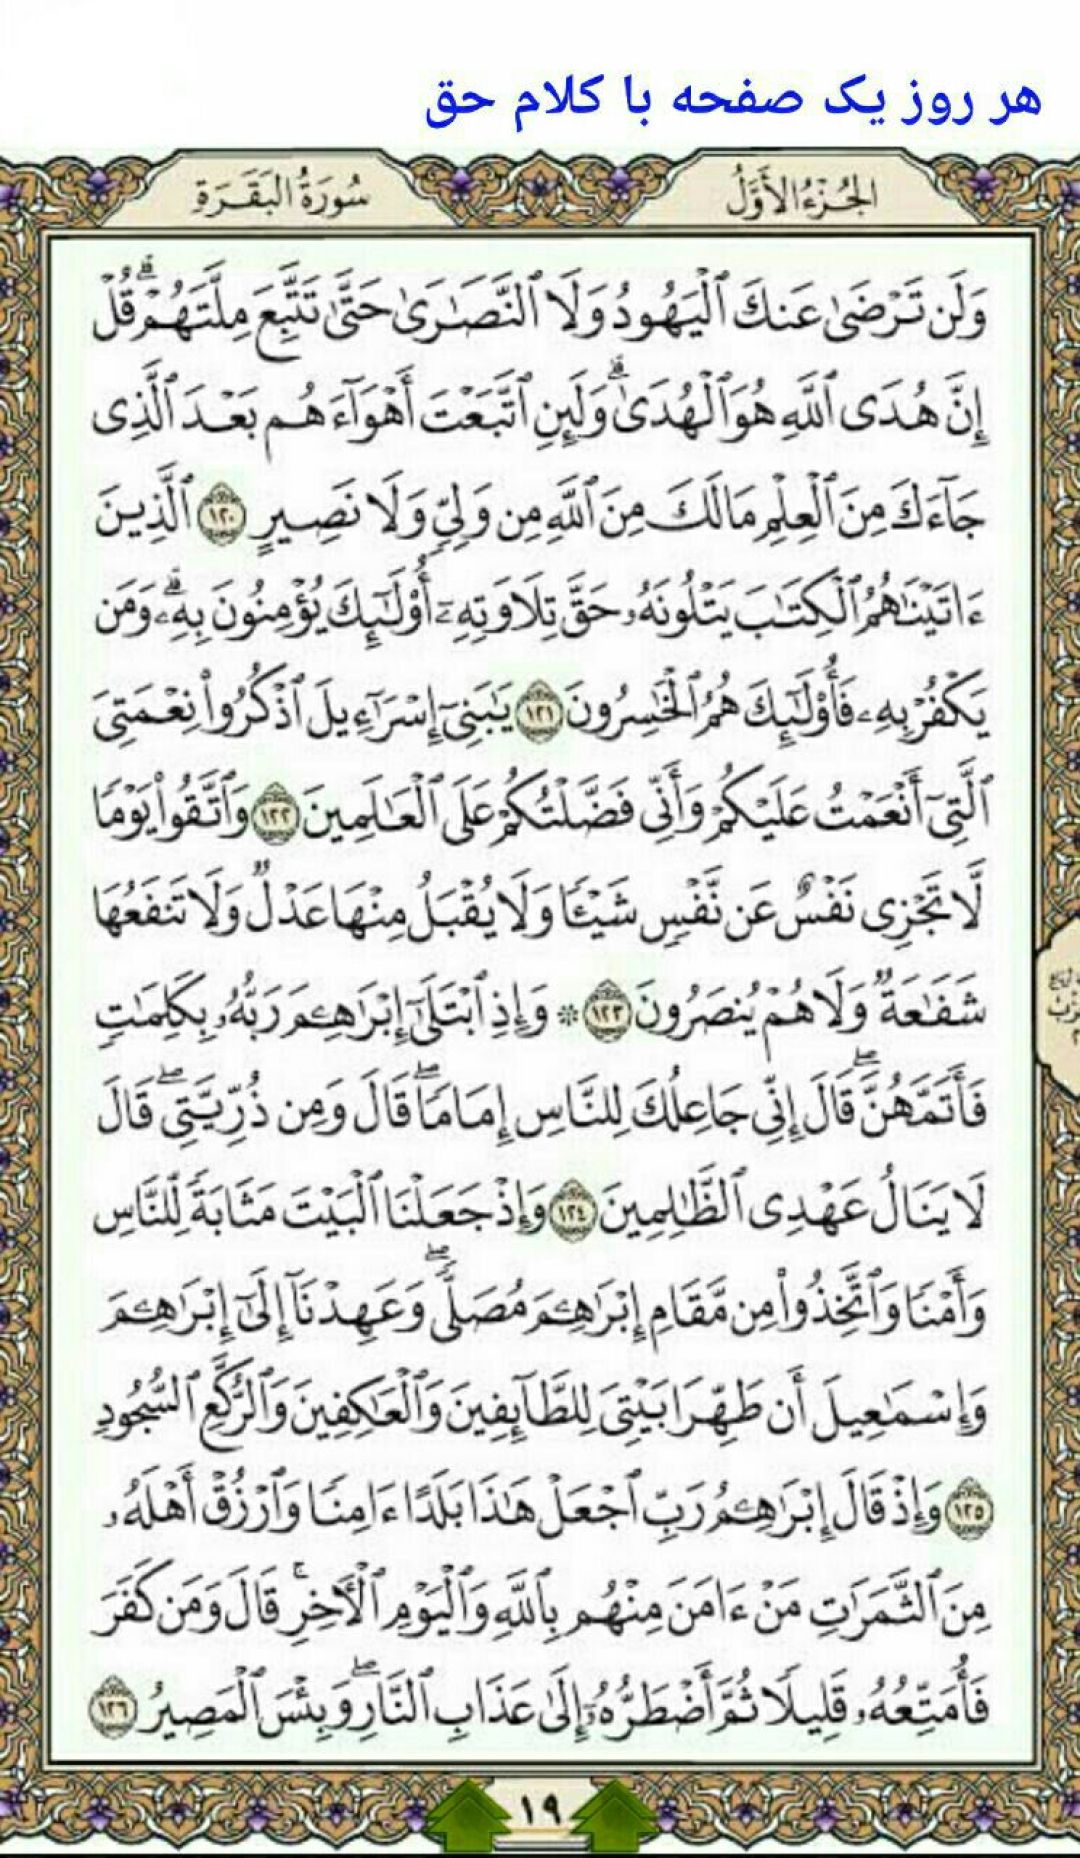 هر روز یک صفحه با کلام حق
الجُزْءُ الأَوَّلُ
سُورَةُ البَقَرَةِ
وَلَن تَرْضَىٰ عَنكَ ٱلْيَهُودُ وَلَا ٱلنَّصَـٰرَىٰ حَتَّىٰ تَتَّبِعَ مِلَّتَهُمْ ۗ قُلْ
إِنَّ هُدَى ٱللَّهِ هُوَ ٱلْهُدَىٰ ۗ وَلَئِنِ ٱتَّبَعْتَ أَهْوَآءَهُم بَعْدَ ٱلَّذِى
جَآءَكَ مِنَ ٱلْعِلْمِ مَا لَكَ مِنَ ٱللَّهِ مِن وَلِىٍّ وَلَا نَصِيرٍ ١٢٠ ٱلَّذِينَ
ءَاتَيْنَـٰهُمُ ٱلْكِتَـٰبَ يَتْلُونَهُۥ حَقَّ تِلَاوَتِهِۦٓ أُو۟لَـٰٓئِكَ يُؤْمِنُونَ بِهِۦ ۗ وَمَن
يَكْفُرْ بِهِۦ فَأُو۟لَـٰٓئِكَ هُمُ ٱلْخَـٰسِرُونَ ١٢١ يَـٰبَنِىٓ إِسْرَٰٓءِيلَ ٱذْكُرُوا۟ نِعْمَتِىَ
ٱلَّتِىٓ أَنْعَمْتُ عَلَيْكُمْ وَأَنِّى فَضَّلْتُكُمْ عَلَى ٱلْعَـٰلَمِينَ ١٢٢ وَٱتَّقُوا۟ يَوْمًا
لَّا تَجْزِى نَفْسٌ عَن نَّفْسٍ شَيْـًٔا وَلَا يُقْبَلُ مِنْهَا عَدْلٌ وَلَا تَنفَعُهَا
شَفَـٰعَةٌ وَلَا هُمْ يُنصَرُونَ ١٢٣ ۞ وَإِذِ ٱبْتَلَىٰٓ إِبْرَٰهِـۧمَ رَبُّهُۥ بِكَلِمَـٰتٍ
فَأَتَمَّهُنَّ ۖ قَالَ إِنِّى جَاعِلُكَ لِلنَّاسِ إِمَامًا ۖ قَالَ وَمِن ذُرِّيَّتِى ۖ قَالَ
لَا يَنَالُ عَهْدِى ٱلظَّـٰلِمِينَ ١٢٤ وَإِذْ جَعَلْنَا ٱلْبَيْتَ مَثَابَةً لِّلنَّاسِ
وَأَمْنًا وَٱتَّخِذُوا۟ مِن مَّقَامِ إِبْرَٰهِـۧمَ مُصَلًّى ۖ وَعَهِدْنَآ إِلَىٰٓ إِبْرَٰهِـۧمَ
وَإِسْمَـٰعِيلَ أَن طَهِّرَا بَيْتِىَ لِلطَّآئِفِينَ وَٱلْعَـٰكِفِينَ وَٱلرُّكَّعِ ٱلسُّجُودِ
١٢٥ وَإِذْ قَالَ إِبْرَٰهِـۧمُ رَبِّ ٱجْعَلْ هَـٰذَا بَلَدًا ءَامِنًا وَٱرْزُقْ أَهْلَهُۥ
مِنَ ٱلثَّمَرَٰتِ مَنْ ءَامَنَ مِنْهُم بِٱللَّهِ وَٱلْيَوْمِ ٱلْـَٔاخِرِ ۖ قَالَ وَمَن كَفَرَ
فَأُمَتِّعُهُۥ قَلِيلًا ثُمَّ أَضْطَرُّهُۥٓ إِلَىٰ عَذَابِ ٱلنَّارِ ۖ وَبِئْسَ ٱلْمَصِيرُ ١٢٦
١٩